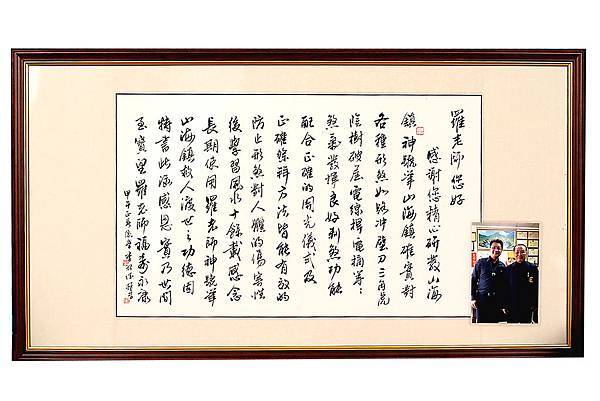 羅老師您好
感謝您精心研發山海
鎮神號牌山海鎮確實對
各種形煞如路冲壁刀三角
陰樹破屋電線桿電等
煞氣發揮良好制煞功能
配合正確的開光儀式及
正確擇方法皆能有效的
防止形煞對人體的傷害性
後學習風水十餘載感念
長期使用羅老師神號牌
山海鎮救人渡世之功德因
特書此函感恩實乃世間
至寶望羅老師福壽永康
甲午